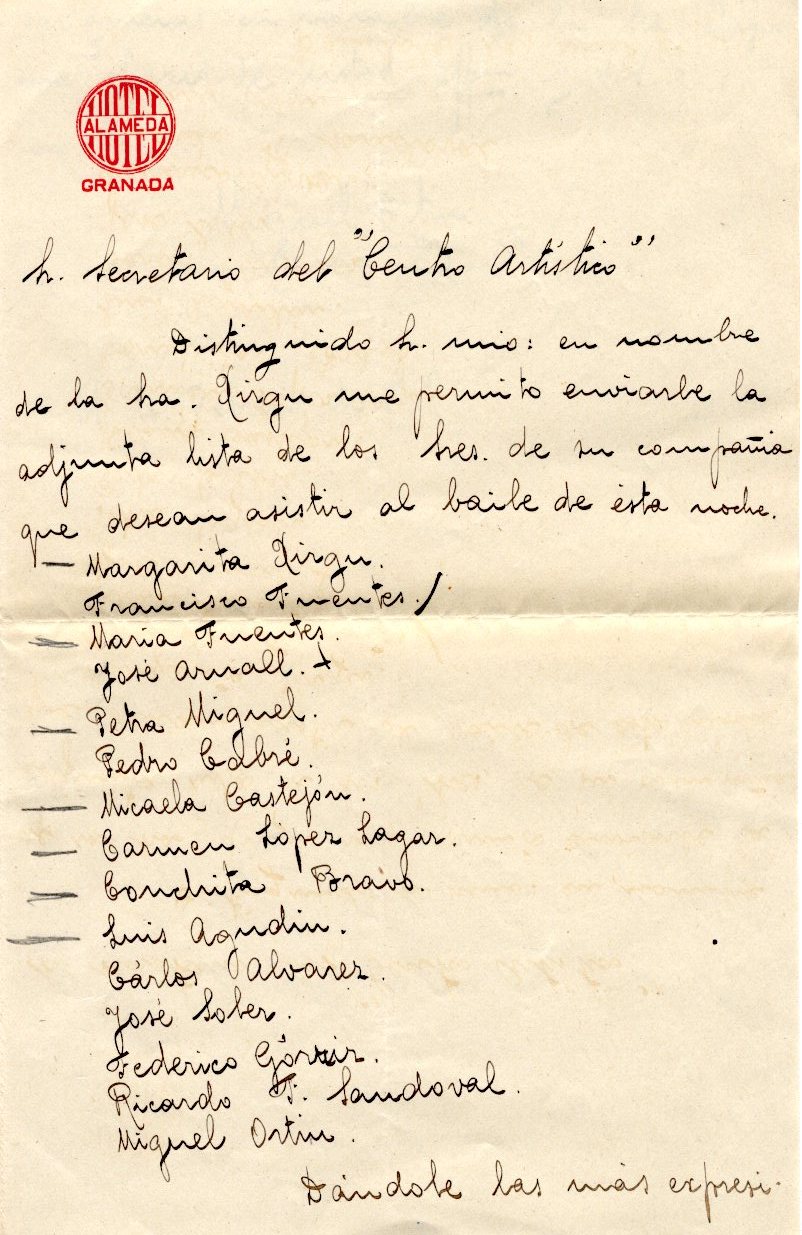 HOTEL
ALAMEDA
HOTEL
GRANADA
Sr. Secretario del "Centro Artístico"
Distinguido Sr. mio: en nombre
de la Sra. Xirgu me permito enviarle la
adjunta lista de los Sres. de su compañia
que desean asistir al baile de ésta noche.
— Margarita Xirgu.
Francisco Fuentes. /
— Maria Fuentes.
José Arnall. +
— Petra Miguel.
Pedro Cabré.
— Micaela Castejón.
— Carmen López Lagar.
— Conchita Bravo.
— Luis Agudin.
Cárlos Alvarez.
José Soler.
Federico Górriz.
Ricardo F. Sandoval.
Miguel Ortin.
Dándole las más expresi-